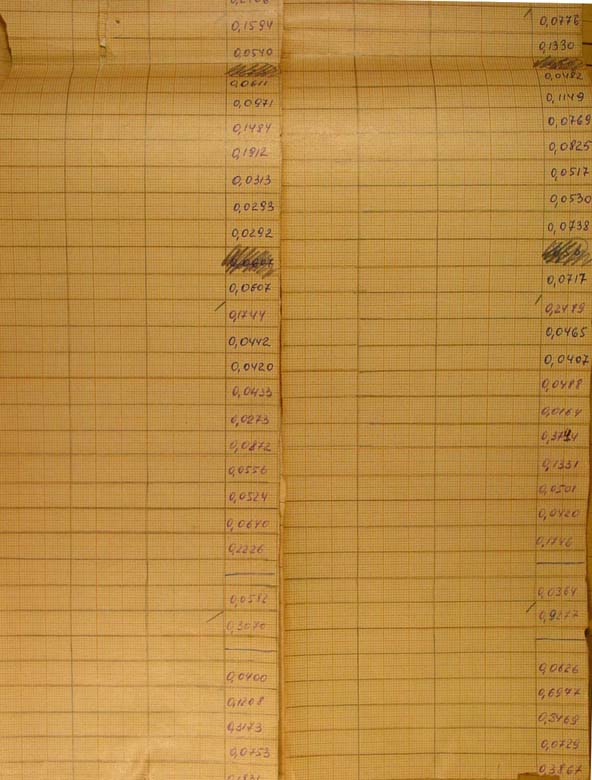 0,1594
0,0540
0,0611
0,0971
0,1484
0,1912
0,0313
0,0293
0,0292
0,0607
0,1744
0,0442
0,0420
0,0433
0,0273
0,0872
0,0556
0,0524
0,0640
0,2226
0,0582
0,3070
0,0400
0,1208
0,3173
0,0753
0,0776
0,1330
0,0482
0,1149
0,0769
0,0825
0,0517
0,0530
0,0738
0,0717
0,2489
0,0465
0,0407
0,0488
0,0164
0,1331
0,0501
0,0420
0,1746
0,0364
0,9277
0,0626
0,6977
0,3469
0,0729
0,3867